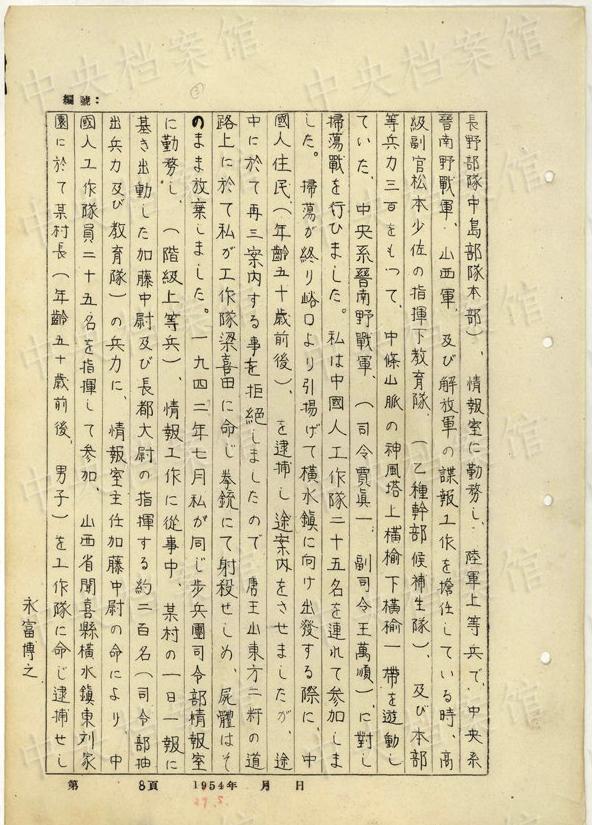 編號：
長野部隊中島部隊本部）、情報室に勤務し、陸軍上等兵で、中央系
晉南野戰軍、山西軍、及び解放軍の諜報工作を擔任している時、高
級副官松本少佐の指揮下教育隊、（乙種幹部候補生隊）、及び本部
等兵力三百をもつて、中條山脈の神風塔上橫榆下橫榆一帶を遊動し
ていた、中央系晉南野戰軍、（司令賈眞一、副司令王萬順）、に對し
掃蕩戰を行ひました。私は中國人工作隊二十五名を連れて參加しま
した。掃蕩が終り峪口より引揚げて橫水鎭に向け出發する際に、中
國人住民、（年齡五十歲前後）、を逮捕し途案內をさせましたが、途
中に於て再三案內する事を拒絕しましたので、唐王山東方二粁の道
路上に於て私が工作隊梁喜田に命じ拳銃にて射殺せしめ、屍體はそ
のまま放棄しました。一九四二年七月私が同じ步兵團司令部情報室
に勤務し、（階級上等兵）、情報工作に從事中、某村の一日一報に
基き出動した加藤中尉及び長都大尉の指揮する約二百名（司令部抽
出兵力及び敎育隊）の兵力に、情報室主任加藤中尉の命により、中
國人工作隊員二十五名を指揮して參加、山西省聞喜縣橫水鎭東刘家
園に於て某村長（年齡五十歲前後、男子）を工作隊に命じ逮捕せし
永富博之
第 8頁 1954年 月 日
29.5.
③
中央档案馆